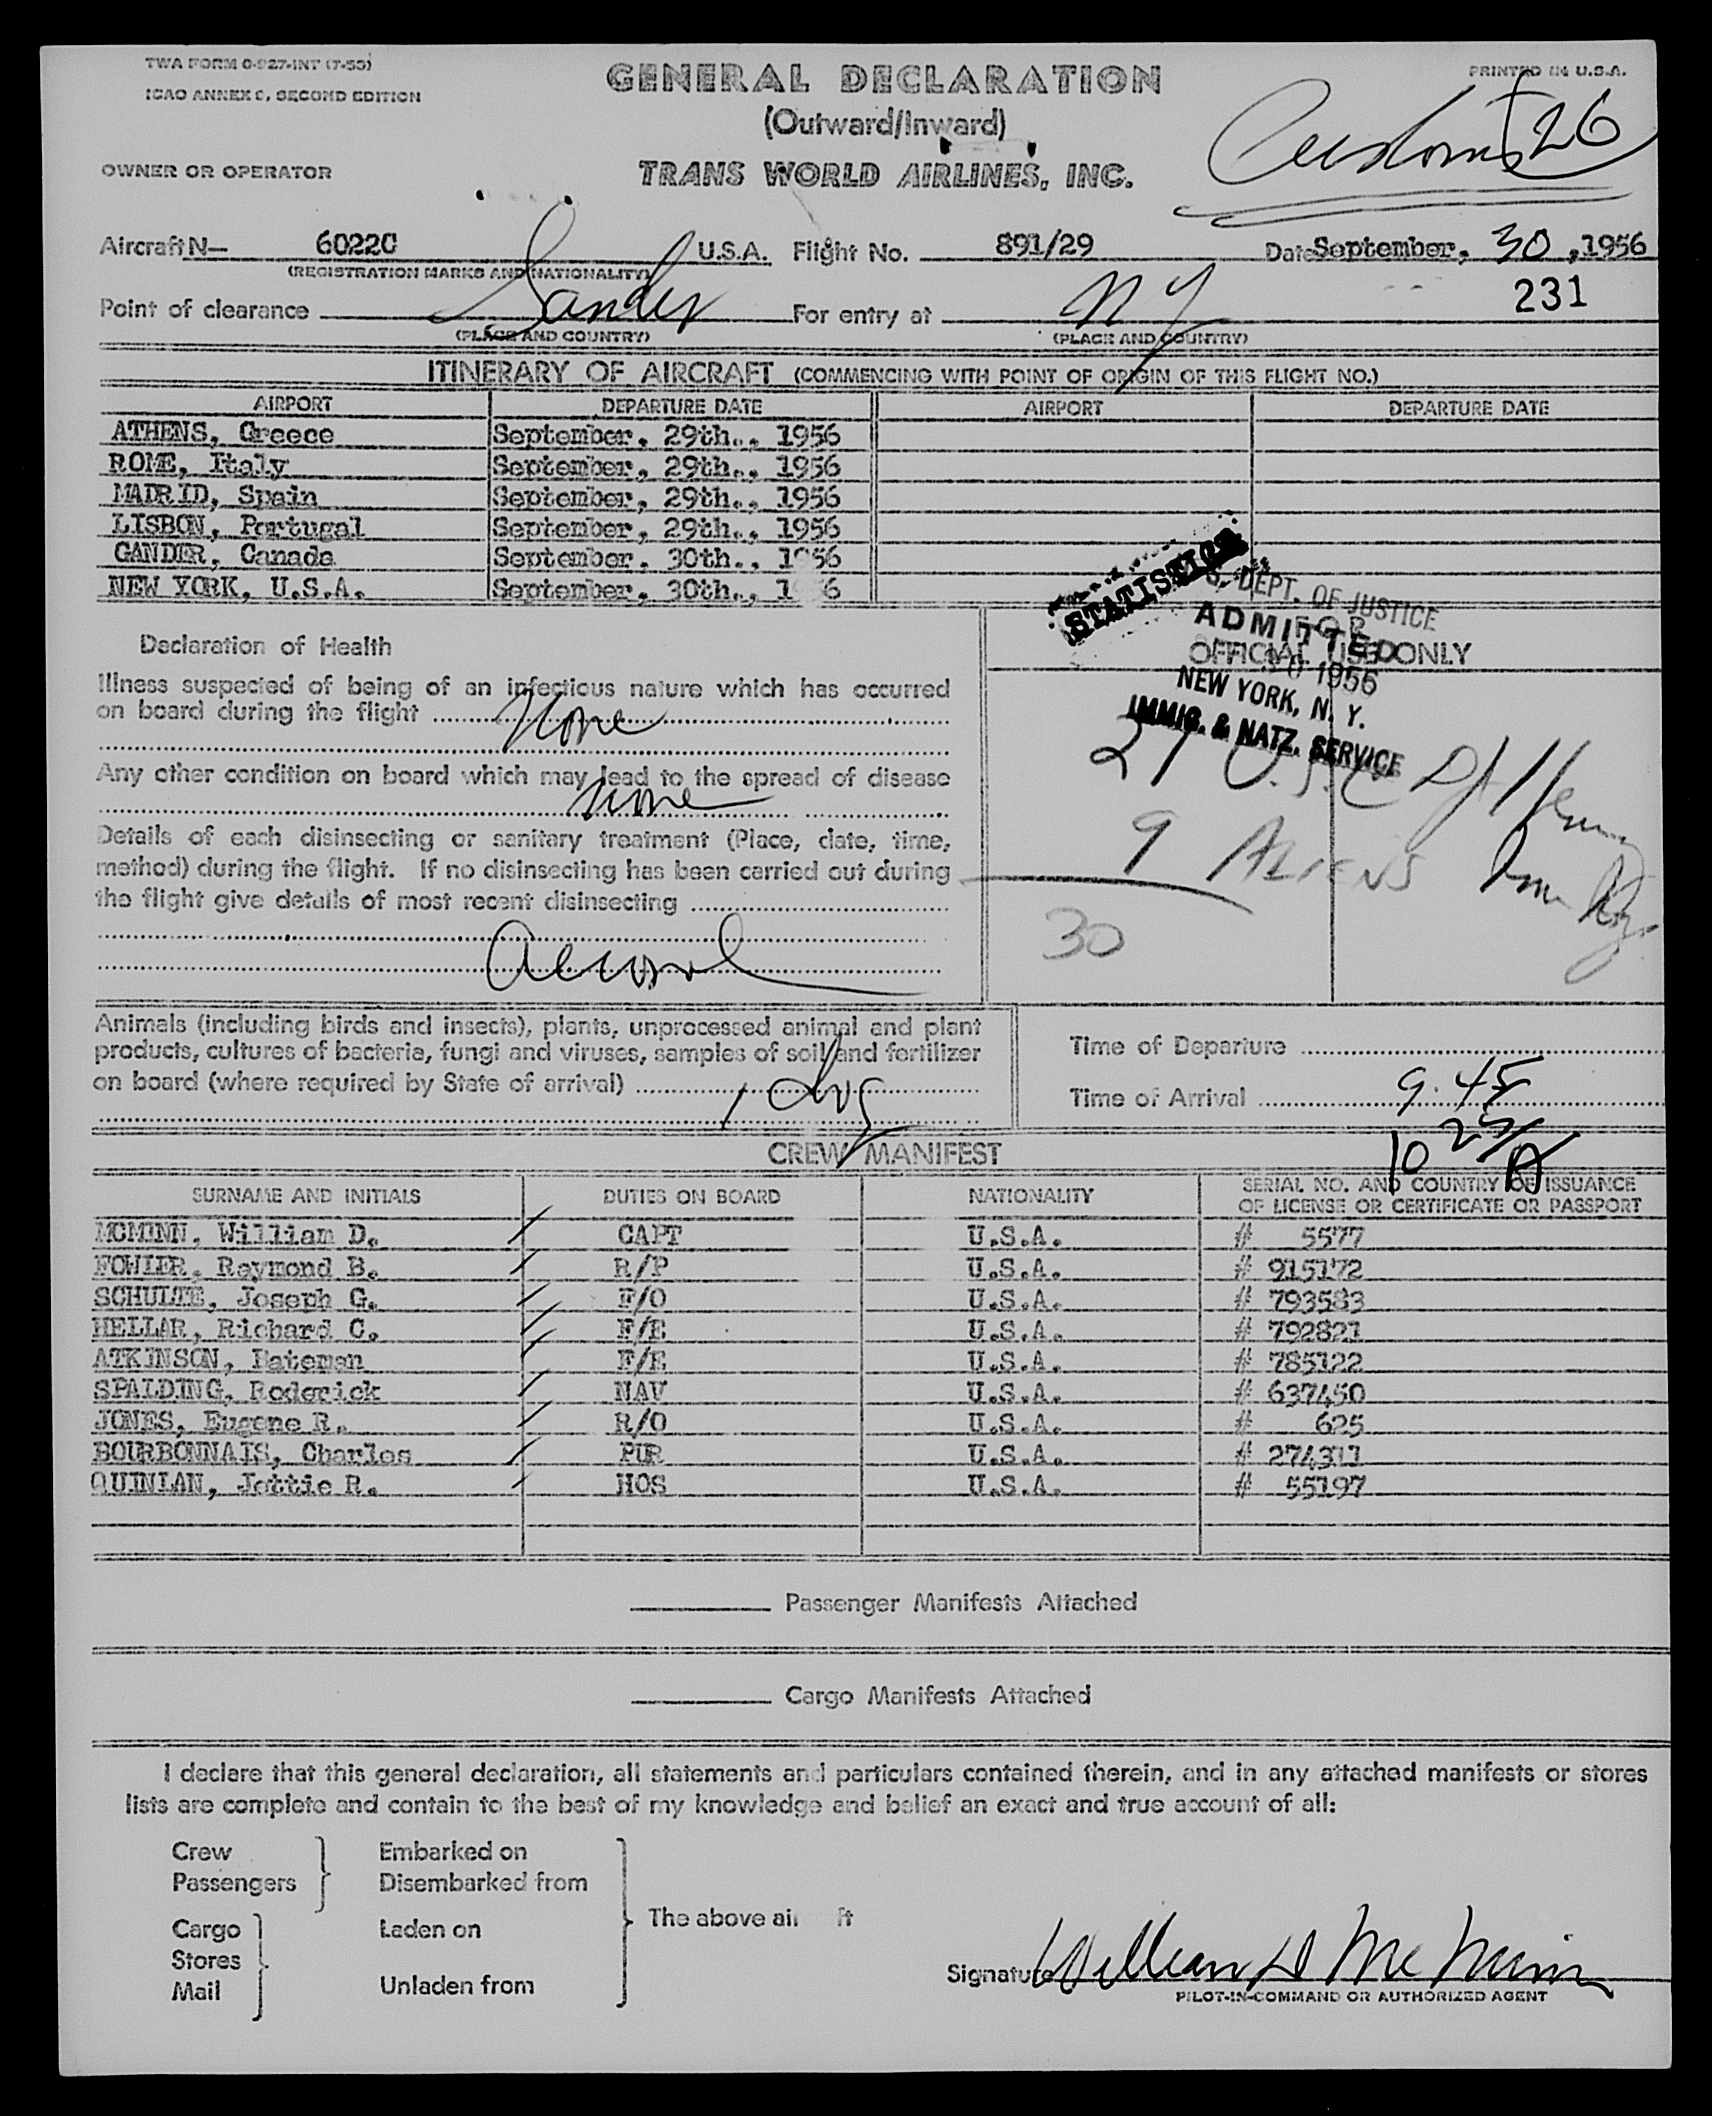 TWA FORM 0-927-INT (7-53)
ICAO ANNEX 9, SECOND EDITION
GENERAL DECLARATION
(Outward/Inward)
PRINTED IN U.S.A.
Customs 26
OWNER OR OPERATOR
TRANS WORLD AIRLINES, INC.
Aircraft N— 6022C U.S.A. Flight No. 891/29 Date September, 30, 1956
(REGISTRATION MARKS AND NATIONALITY)
231
Point of clearance Gander For entry at NY
(PLACE AND COUNTRY) (PLACE AND COUNTRY)
ITINERARY OF AIRCRAFT (COMMENCING WITH POINT OF ORIGIN OF THIS FLIGHT NO.)
AIRPORT DEPARTURE DATE AIRPORT DEPARTURE DATE
ATHENS, Greece September, 29th., 1956
ROME, Italy September, 29th., 1956
MADRID, Spain September, 29th., 1956
LISBON, Portugal September, 29th., 1956
GANDER, Canada September, 30th., 1956
NEW YORK, U.S.A. September, 30th., 1956
STATISTICS
U.S. DEPT. OF JUSTICE
ADMITTED
FOR
OFFICIAL USE ONLY
30 1956
NEW YORK, N. Y.
IMMIG. & NATZ. SERVICE
Declaration of Health
Illness suspected of being of an infectious nature which has occurred
on board during the flight None
Any other condition on board which may lead to the spread of disease
None
Details of each disinsecting or sanitary treatment (Place, date, time,
method) during the flight. If no disinsecting has been carried out during
the flight give details of most recent disinsecting
Aerosol
21 U.S.C
9 ALIENS
30
Animals (including birds and insects), plants, unprocessed animal and plant
products, cultures of bacteria, fungi and viruses, samples of soil and fertilizer
on board (where required by State of arrival)
1 dog
Time of Departure
Time of Arrival 9.45
10 25/A
CREW MANIFEST
SURNAME AND INITIALS DUTIES ON BOARD NATIONALITY SERIAL NO. AND COUNTRY OF ISSUANCE
OF LICENSE OR CERTIFICATE OR PASSPORT
MCMINN, William D. CAPT U.S.A. # 5577
FOWLER, Raymond B. R/P U.S.A. # 915172
SCHULTE, Joseph G. F/O U.S.A. # 793583
HELLAR, Richard C. F/E U.S.A. # 792821
ATKINSON, Bateman F/E U.S.A. # 785122
SPALDING, Roderick NAV U.S.A. # 637450
JONES, Eugene R. R/O U.S.A. # 625
BOURBONNAIS, Charles PUR U.S.A. # 274311
QUINLAN, Jettie R. HOS U.S.A. # 55197
Passenger Manifests Attached
Cargo Manifests Attached
I declare that this general declaration, all statements and particulars contained therein, and in any attached manifests or stores
lists are complete and contain to the best of my knowledge and belief an exact and true account of all:
Crew Embarked on
Passengers Disembarked from
The above aircraft
Cargo Laden on
Stores
Mail Unladen from
Signature William D McMinn
PILOT-IN-COMMAND OR AUTHORIZED AGENT